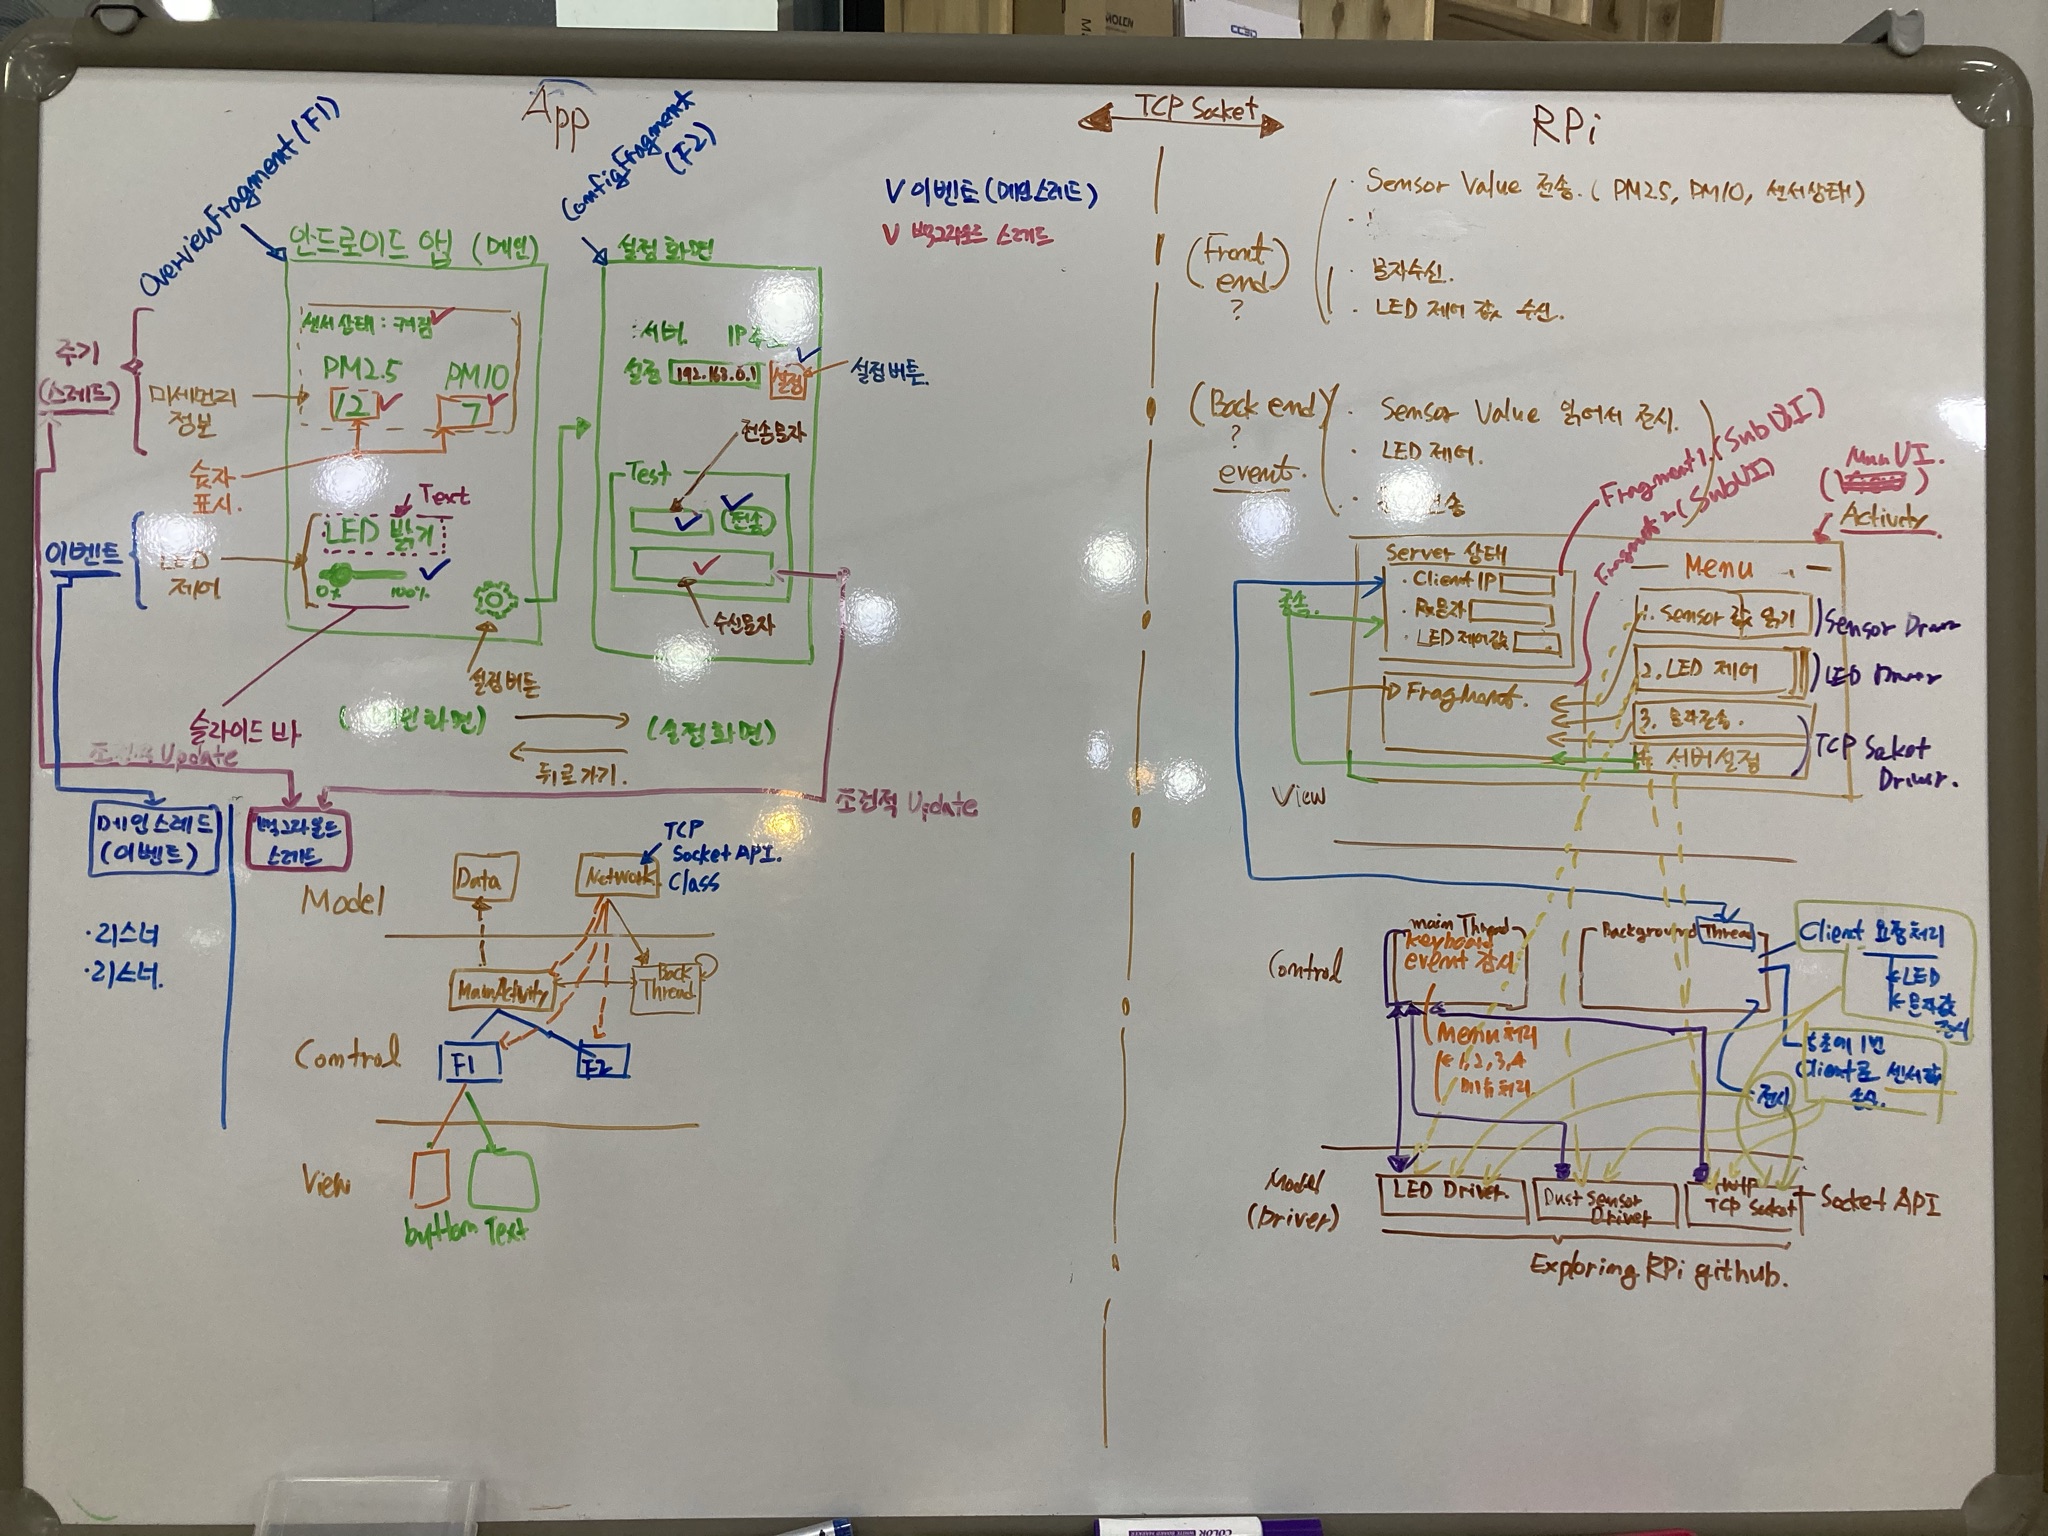 App
OverviewFragment (F1)
ConfigFragment
(F2)
V 이벤트 (메인스레드)
V 백그라운드 스레드
안드로이드 앱 (메인)
설정 화면
주기
(스레드)
미세먼지
정보
센서상태 : 켜짐
PM2.5
PM10
12
7
숫자
표시.
서버
IP주소
설정
192.168.0.1
설정
설정버튼.
전송문자
Test
전송
수신문자
이벤트
LED
제어
Text
LED 밝기
0%
100%
설정버튼
슬라이드 바
(메인화면)
(설정화면)
뒤로가기.
Update
조건적 Update
메인스레드
(이벤트)
백그라운드
스레드
· 리스너
· 리스너.
Model
Data
Network
TCP
Socket API.
Class
MainActivity
Back
Thread
Control
F1
F2
View
button
Text
TCP Socket
RPi
(Front
end)
?
· Sensor Value 전송. (PM2.5, PM10, 센서상태)
· 문자수신.
· LED 제어 값 수신.
(Back end)
?
event.
· Sensor Value 읽어서 표시.
· LED 제어.
Fragment 1. (Sub UI)
Fragment 2 (Sub UI)
Main UI.
Activity
Server 상태
· Client IP
· Rx문자
· LED 제어값
Fragment.
종속.
Menu
1. Sensor 값 읽기
2. LED 제어
3. 문자전송.
4. 서버설정
Sensor Driver
LED Driver
TCP Socket
Driver.
View
Control
main Thread
keyboard
event 감시
Menu처리
1, 2, 3, 4
Background Thread
Client 요청처리
LED
문자값
전시
5초에 1번
Client로 센서값
전시
Model
(Driver)
LED Driver.
Dust Sensor
Driver
TCP Socket
Socket API
Exploring RPi github.